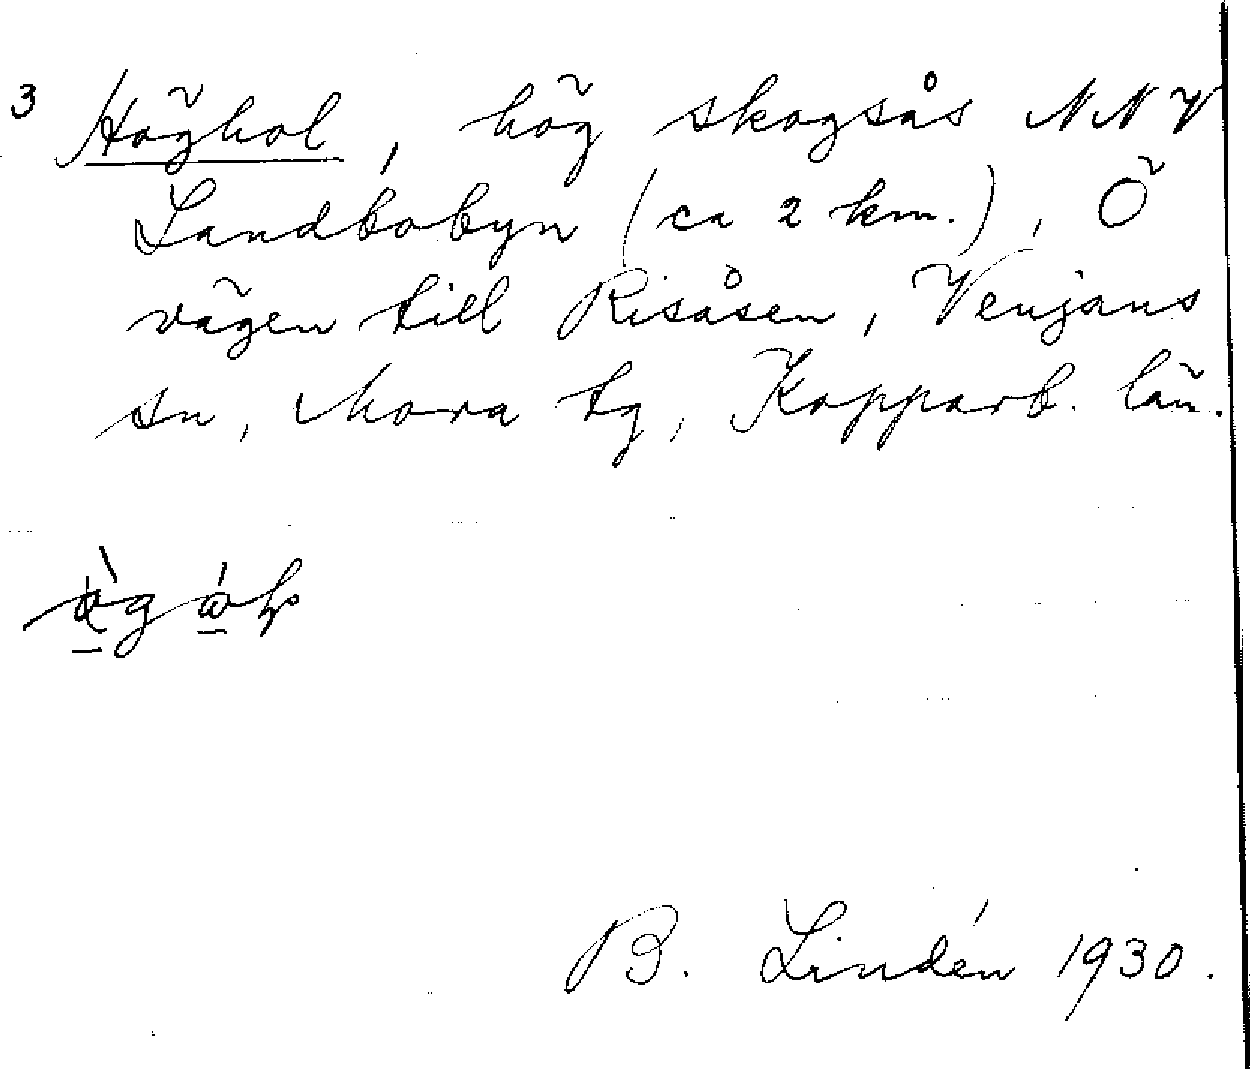 3 Höghol, hög skogsås NNV
Landbobyn (ca 2 km.), Ö
vägen till Risåsen, Venjans
sn, Mora tg, Kopparb. län.
B. Lindén 1930.